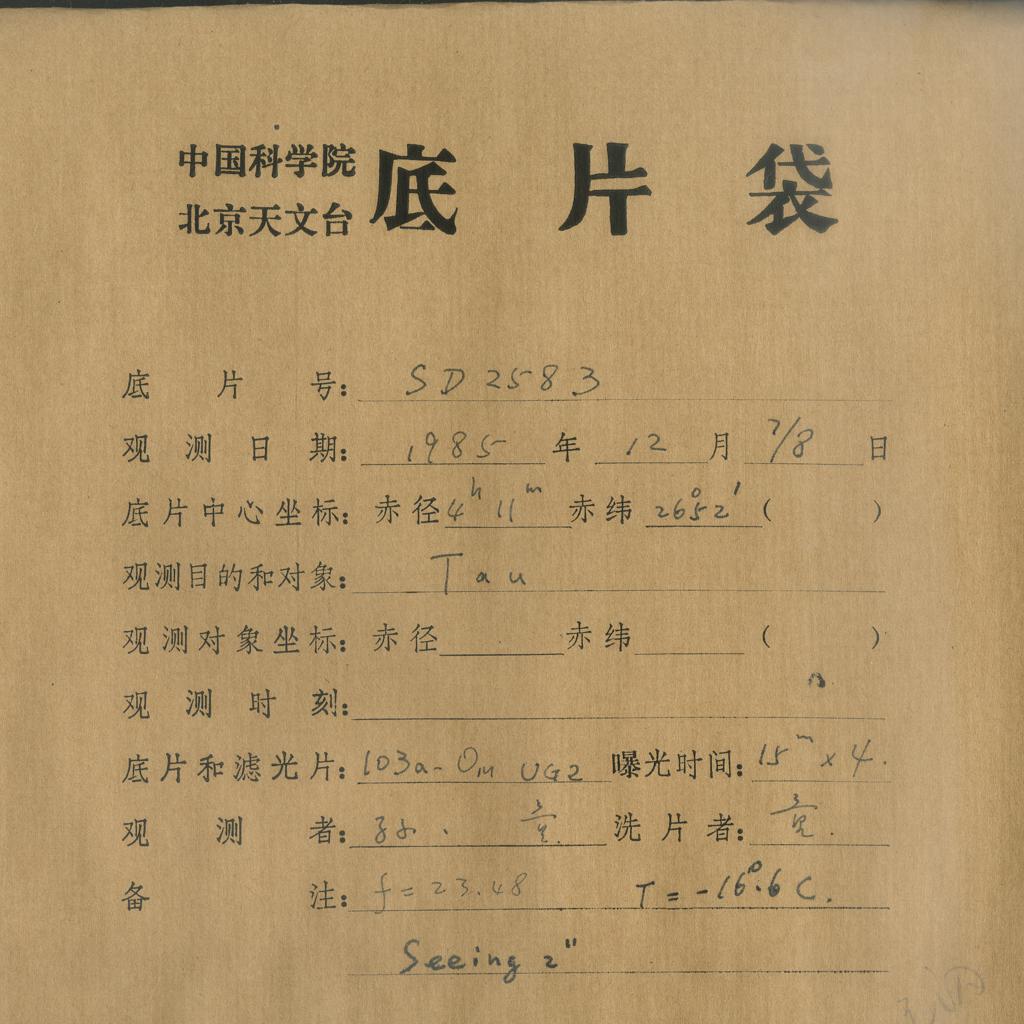 中国科学院
北京天文台
底片袋
底片号: SD2583
观测日期: 1985年12月7/8日
底片中心坐标: 赤径4h11m 赤纬26°52′( )
观测目的和对象: Tau
观测对象坐标: 赤径 赤纬 ( )
观测时刻:
底片和滤光片: 103a-O UG2 曝光时间: 15m×4.
观测者: 孙. 洗片者:
备注: f=23.48 T=-16°.6C.
Seeing 2"